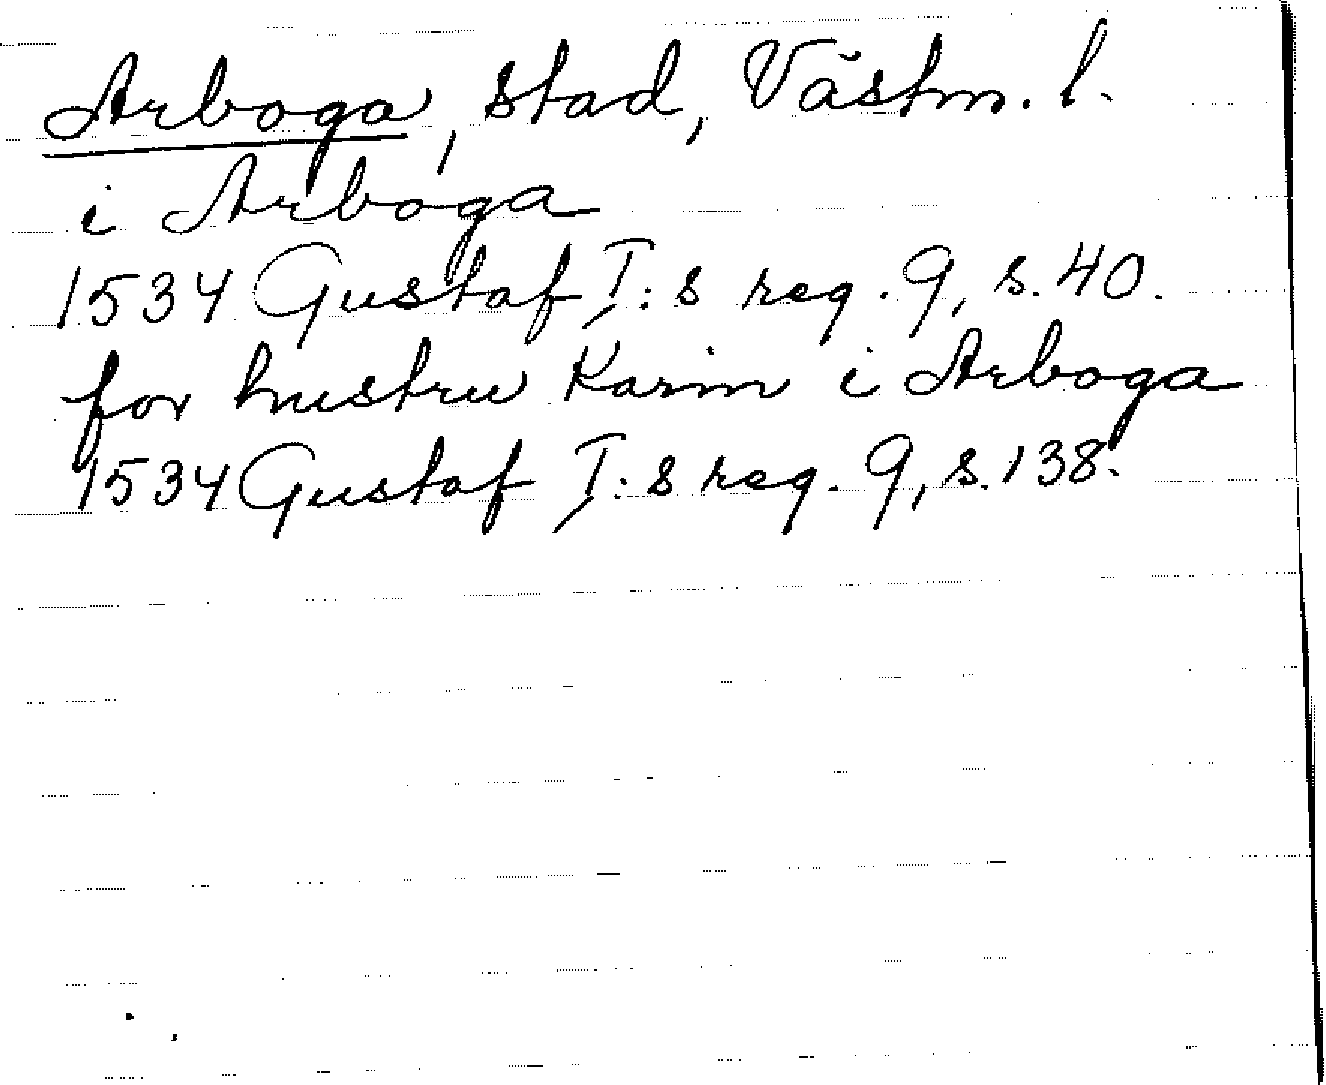 Arboga, stad, Västm. l.
i Arboga
1534 Gustaf I:s reg. 9, s. 40.
for hustru Karin i Arboga
1534 Gustaf I:s reg. 9, s. 138.